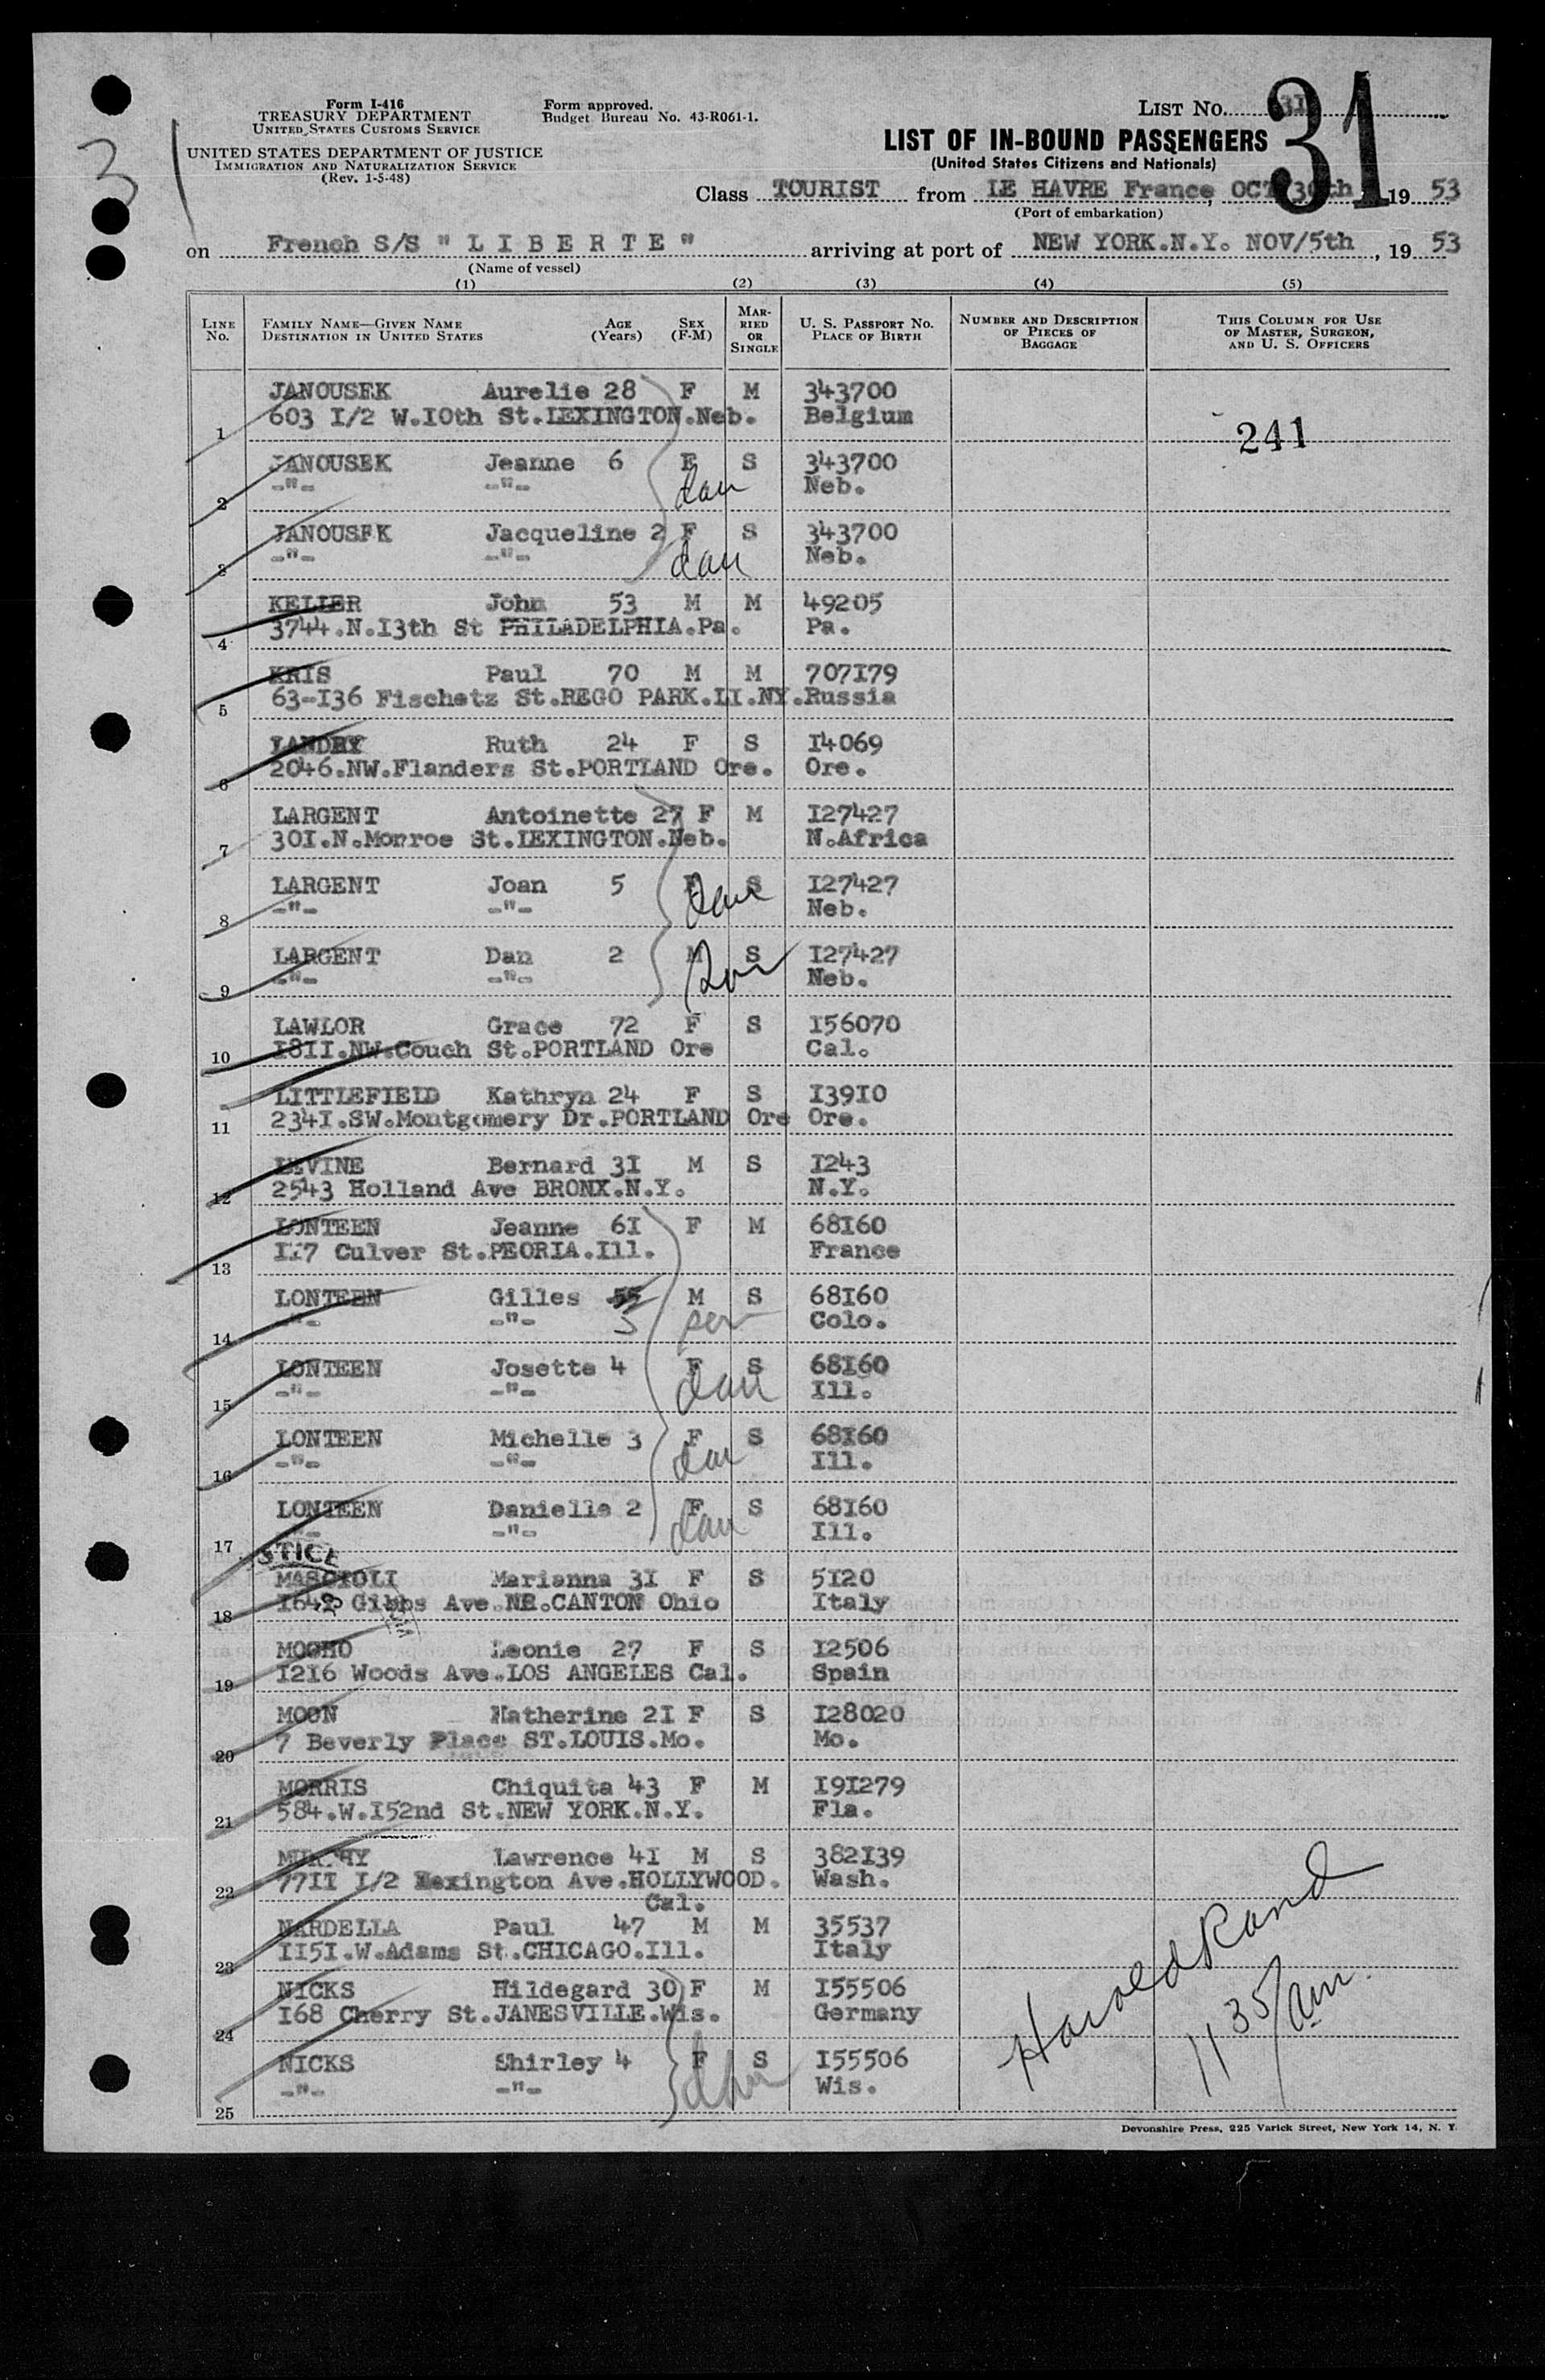 Form I-416
TREASURY DEPARTMENT
UNITED STATES CUSTOMS SERVICE
UNITED STATES DEPARTMENT OF JUSTICE
IMMIGRATION AND NATURALIZATION SERVICE
(Rev. 1-5-48)
Form approved.
Budget Bureau No. 43-R061-1.
LIST NO. 31
31
31
LIST OF IN-BOUND PASSENGERS
(United States Citizens and Nationals)
Class TOURIST from LE HAVRE France, OCT 30th 19 53
(Port of embarkation)
on French S/S " L I B E R T E " arriving at port of NEW YORK.N.Y. NOV/5th, 19 53
(Name of vessel)
(1) (2) (3) (4) (5)
LINE NO. FAMILY NAME—GIVEN NAME DESTINATION IN UNITED STATES AGE (Years) SEX (F-M) MARRIED OR SINGLE U. S. PASSPORT NO. PLACE OF BIRTH NUMBER AND DESCRIPTION OF PIECES OF BAGGAGE THIS COLUMN FOR USE OF MASTER, SURGEON, AND U. S. OFFICERS
JANOUSEK Aurelie 28 F M 343700
1 603 I/2 W.I0th St.LEXINGTON.Neb. Belgium
241
JANOUSEK Jeanne 6 F S 343700
2 -"- -"- dau Neb.
JANOUSEK Jacqueline 2 F S 343700
3 -"- -"- dau Neb.
KELLER John 53 M M 49205
4 3744.N.I3th St PHILADELPHIA.Pa. Pa.
KRIS Paul 70 M M 707I79
5 63-I36 Fischetz St.REGO PARK.LI.NY. Russia
LANDRY Ruth 24 F S I4069
6 2046.NW.Flanders St.PORTLAND Ore. Ore.
LARGENT Antoinette 27 F M I27427
7 30I.N.Monroe St.LEXINGTON.Neb. N.Africa
LARGENT Joan 5 F S I27427
8 -"- -"- dau Neb.
LARGENT Dan 2 M S I27427
9 -"- -"- son Neb.
LAWLOR Grace 72 F S I56070
10 I8II.NW.Couch St.PORTLAND Ore Cal.
LITTLEFIELD Kathryn 24 F S I39I0
11 234I.SW.Montgomery Dr.PORTLAND Ore Ore.
LEVINE Bernard 3I M S I243
12 2543 Holland Ave BRONX.N.Y. N.Y.
LONTEEN Jeanne 6I F M 68I60
13 II7 Culver St.PEORIA.Ill. France
LONTEEN Gilles 55 M S 68I60
14 -"- -"- 5 son Colo.
LONTEEN Josette 4 F S 68I60
15 -"- -"- dau Ill.
LONTEEN Michelle 3 F S 68I60
16 -"- -"- dau Ill.
LONTEEN Danielle 2 F S 68I60
17 -"- -"- dau Ill.
STICE
MASCIOLI Marianna 3I F S 5I20
18 I641 Gibbs Ave.NE.CANTON Ohio Italy
MOCHO Leonie 27 F S I2506
19 I2I6 Woods Ave.LOS ANGELES Cal. Spain
MOON Katherine 2I F S I28020
20 7 Beverly Place ST.LOUIS.Mo. Mo.
MORRIS Chiquita 43 F M I9I279
21 584.W.I52nd St.NEW YORK.N.Y. Fla.
MURPHY Lawrence 4I M S 382I39
22 77II I/2 Lexington Ave.HOLLYWOOD. Wash.
Cal.
NARDELLA Paul 47 M M 35537
23 II5I.W.Adams St.CHICAGO.Ill. Italy
NICKS Hildegard 30 F M I55506
24 I68 Cherry St.JANESVILLE.Wis. Germany
NICKS Shirley 4 F S I55506
25 -"- -"- dau Wis.
Harold Rand
11 35/am.
Devonshire Press, 225 Varick Street, New York 14, N. Y.